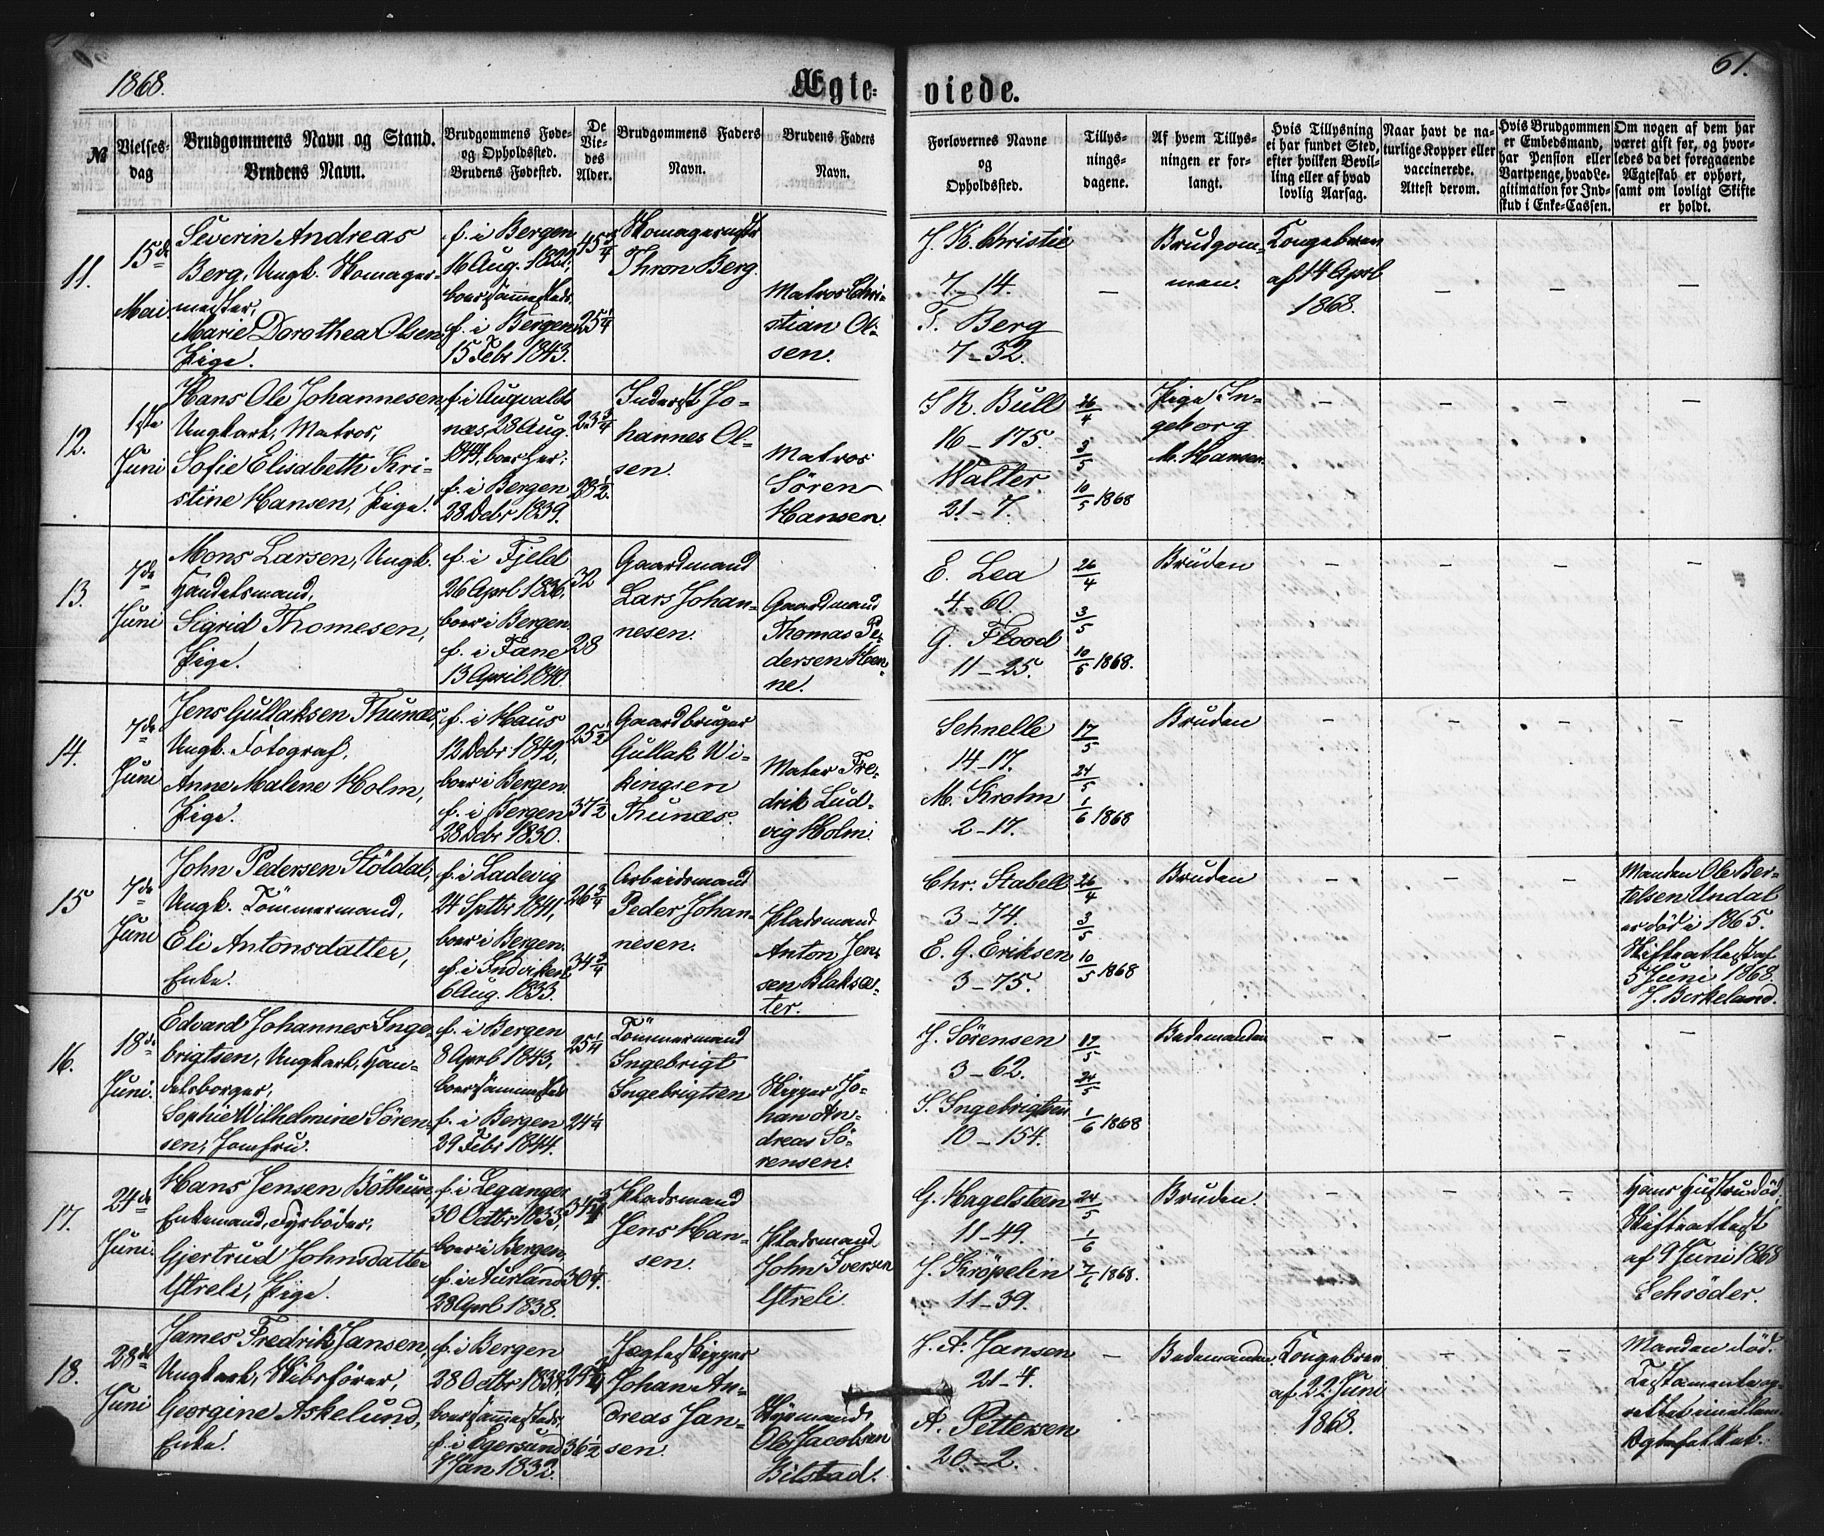 1868.
Ægte-
viede.
61.
№
Vielses-
dag
Brudgommens Navn og Stand.
Brudens Navn.
Brudgommens Føde-
og Opholdssted.
Brudens Fødested.
De
Vie-
des
Alder.
Brudgommens Faders
Navn.
Brudens Faders
Navn.
Forlovernes Navne
og
Opholdssted.
Tillys-
nings-
dagene.
Af hvem Tillys-
ningen er for-
langt.
Hvis Tillysning
ei har fundet Sted,
efter hvilken Bevil-
ling eller af hvad
lovlig Aarsag.
Naar havt de na-
turlige Kopper eller
vaccinerede.
Attest derom.
Hvis Brudgommen
er Embedsmand,
har Pension eller
Vartpenge, hvad Le-
gitimation for Ind-
skud i Enke-Cassen.
Om nogen af dem har
været gift før, og hvor-
ledes da det foregaaende
Ægteskab er ophørt,
samt om lovligt Skifte
er holdt.
11.
15de
Mai
Severin Andreas
Berg, Ungk. Skomager-
mester,
Marie Dorothea Olsen
Pige.
f. i Bergen
16 Aug. 1822,
boer sammesteds
f. i Bergen
15 Febr 1843.
45 3/4
25 1/4
Skomagermester
Thron Berg.
Matros Chri-
stian Ol-
sen.
J. K. Christie
7-14.
T. Berg
7-32.
—
Brudgom-
men.
Kongebrev
af 14 April
1868.
— — —
12.
1ste
Juni
Hans Ole Johannesen,
Ungkarl, Matros,
Sofie Elisabeth Kri-
stine Hansen, Pige.
f. i Augvalds
næs, 28 Aug.
1844, boer her.
f. i Bergen
28 Debr 1839.
23 3/4
28 1/2
Inderst Jo-
hannes Ol-
sen.
Matros
Sören
Hansen
J R. Bull
16-175.
Walter
21-7.
26/4
3/5
10/5 1868
Pige In-
geborg
M. Hansen
— — — —
13.
7de
Juni
Mons Larsen, Ungk.
Handelsmand,
Sigrid Thomesen,
Pige.
f. i Fjeld
26 April 1836,
boer i Bergen.
f. i Fane
13 April 1840.
32
28
Gaardmand
Lars Johan-
nesen.
Gaardmand
Thomas Pe-
dersen Hen-
ne.
E. Lea
4-60.
G. Flood
11-25.
26/4
3/5
10/5 1868.
Bruden
— — — —
14.
7de
Juni
Jens Gullaksen Thunæs,
Ungk. Fotograf,
Anne Malene Holm,
Pige.
f. i Haus
12 Debr 1842,
boer i Bergen.
f. i Bergen
28 Debr 1830.
25 1/2
37 1/2
Gaardbruger
Gullak Wi-
kingsen
Thunæs.
Maler Fre-
drik Lud-
vig Holm.
Schnelle
14-17.
M. Krohn
2-17.
17/5
24/5
1/6 1868
Bruden
— — — —
15
7de
Juni
John Pedersen Stöldal,
Ungk. Tömmermand,
Eli Antonsdatter,
Enke.
f. i Ladevig
24 Septbr 1841,
boer i Bergen.
f. i Indviken
6 Aug. 1833.
26 3/4
34 3/4
Arbeidsmand
Peder Johan-
nesen.
Pladsmand
Anton Jen-
sen Blaksæ-
ter.
Chr. Stabell
3-74.
E. G. Eriksen
3-75.
26/4
3/5
10/5 1868
Bruden
— — —
Manden Ole Ber-
telsen Undal
er död i 1865.
Skifteattest af
5 Juni 1868
J. Birkeland.
16.
18de
Juni.
Edvard Johannes Inge-
brigtsen, Ungkarl, Han-
delsborger,
Sophie Wilhelmine Sören-
sen, Jomfru.
f. i Bergen
8 Aprl 1843,
boer sammesteds
f. i Bergen
29 Febr 1844.
25 1/4
24 1/4
Tömmermand
Ingebrigt
Ingebrigtsen
Skipper Jo-
han An-
dreas Sö-
rensen.
J. Sörensen
3-62.
S. Ingebrigtsen
10-154.
17/5
24/5
1/6 1868
Bedemanden
— — — —
17.
24de
Juni.
Hans Jensen Böthun,
Enkemand, Fyrböder,
Gjertrud Johnsdatter
Ytreli, Pige.
f. i Leganger
30 Octbr 1833,
boer i Bergen,
f. i Aurland
28 Aprl 1838.
34 3/4
30 1/4.
Pladsmand
Jens Han-
sen.
Pladsmand
John Iversen
Ytreli.
G. Hagelsteen
11-49.
J. Kröpelin
11-39.
24/5
1/6
7/6 1868.
Bruden.
— — —
Hans Hustru död,
Skifteattest
af 9 Juni 1868
Schröder.
18.
28de
Juni
James Fredrik Jansen,
Ungkarl, Skibsförer,
Georgine Askelund,
Enke.
f. i Bergen
28 Octbr 1838,
boer sammesteds.
f. i Egersund
7 Jan 1832.
36 1/2
Jægteskipper
Johan An-
dreas Jan-
sen.
Styrmand
Ole Jacobsen
Bilstad.
J. A. Jansen
21-4.
A. Pettersen
20-2.
—
Bedemanden
Kongebrev
af 22 Juni
1868.
— —
Manden död.
Testamente op-
rettet imellem
Ægtefolket.